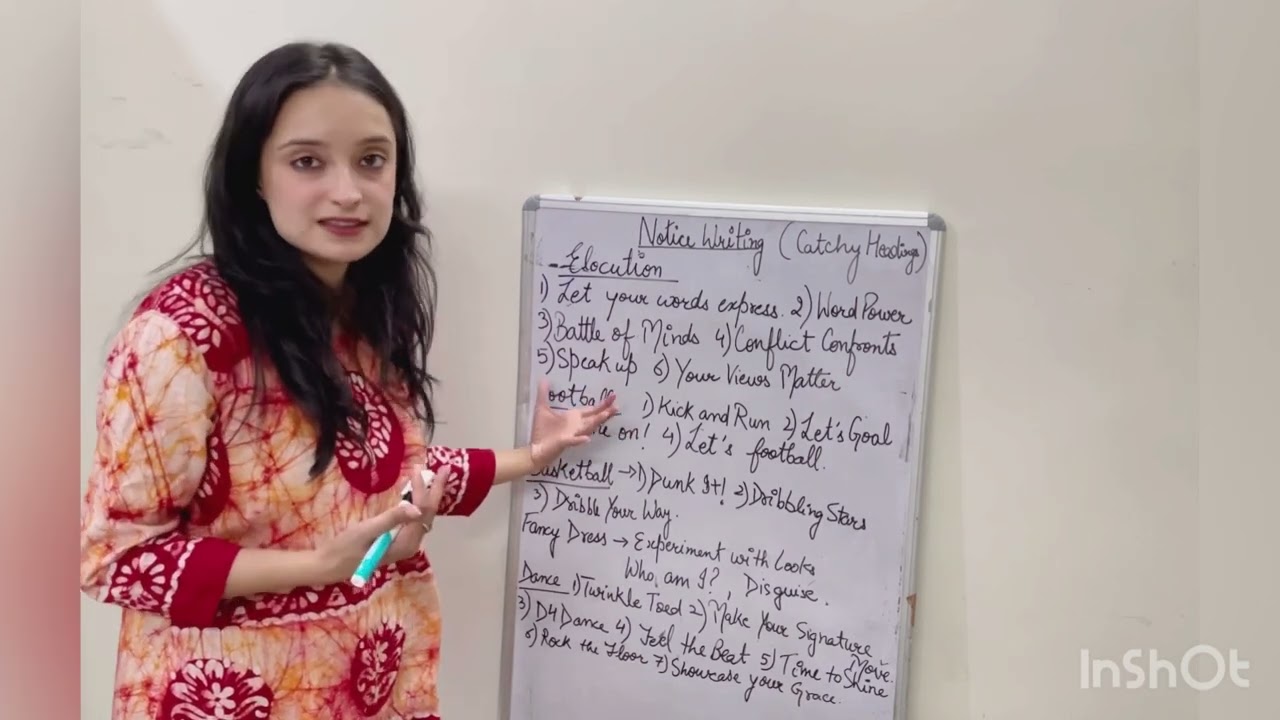 Notice Writing (Catchy Headings)
- Elocution
1) Let your words express. 2) Word Power
3) Battle of Minds 4) Conflict Confronts
5) Speak up 6) Your Views Matter
1) Kick and Run 2) Let's Goal
on! 4) Let's football.
Basketball → 1) Dunk It! 2) Dribbling Stars
3) Dribble Your Way.
Fancy Dress → Experiment with Looks
Who am I? Disguise.
Dance 1) Twinkle Toed 2) Make Your Signature Move.
3) D4 Dance 4) Feel the Beat 5) Time to Shine
6) Rock the Floor 7) Showcase your Grace.
InShOt